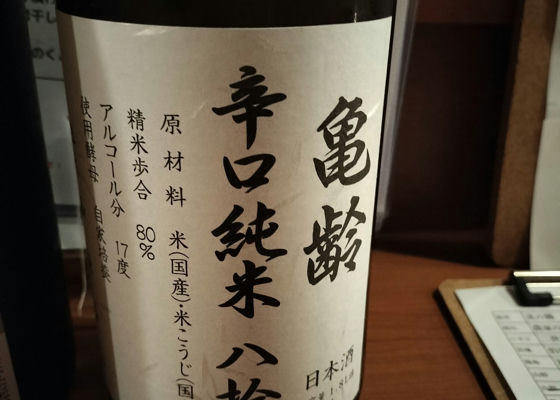 亀齢
辛口純米 八拾
日本酒
原材料 米(国産)・米こうじ(国
精米歩合 80%
アルコール分 17度
使用酵母 自家培養